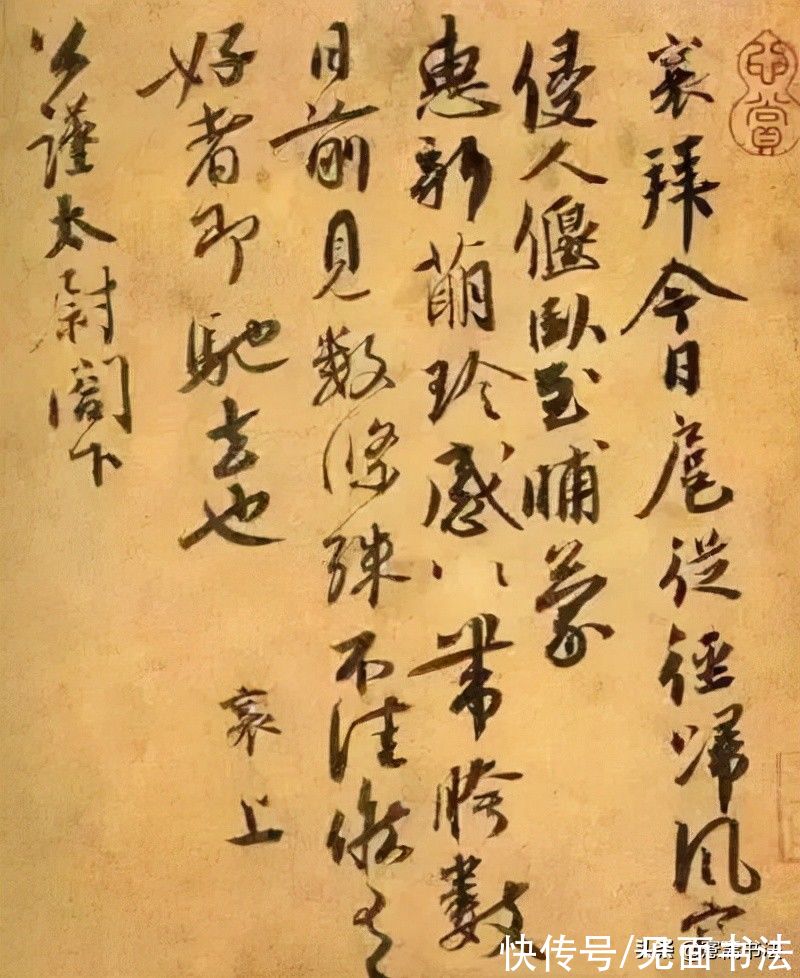 心賞
襄拜今日扈從徑歸風寒
侵人偃臥至晡蒙
惠新萌珍感〻帶胯數
日前見數條殊不佳候有
好者即馳去也
襄上
公謹太尉閣下
快传号/见面书法